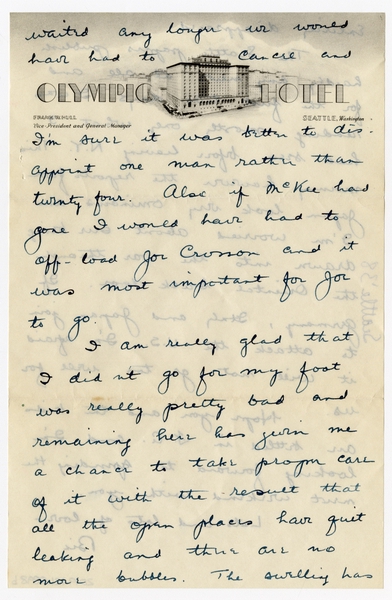 waited any longer we would
have had to cancel and
OLYMPIC HOTEL
FRANK W. HULL
Vice-President and General Manager
SEATTLE, Washington
I'm sure it was better to dis-
appoint one man rather than
twenty four. Also if McKee had
gone I would have had to
off-load Joe Crosson and it
was most important for Joe
to go.
I am really glad that
I didn't go for my foot
was really pretty bad and
remaining here has given me
a chance to take proper care
of it with the result that
all the open places have quit
leaking and there are no
more bubbles. The swelling has